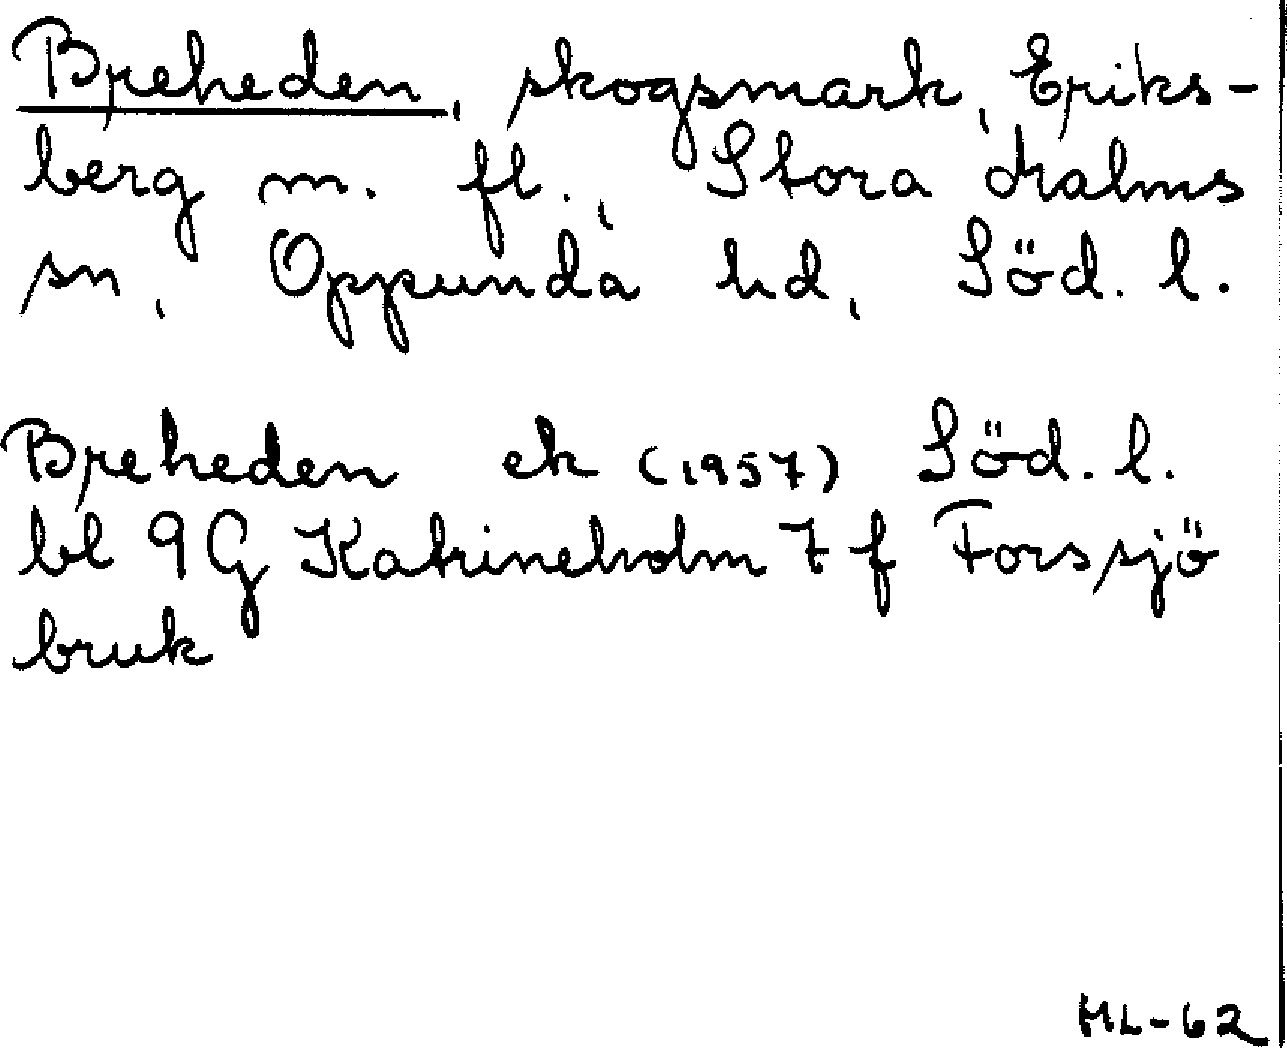 Breheden, skogsmark, Eriks-
berg m. fl., Stora Malms
sn, Oppunda hd, Söd. l.
Breheden ek (1957) Söd. l.
bl 9G Katrineholm 7 f Forssjö
bruk
ML-62